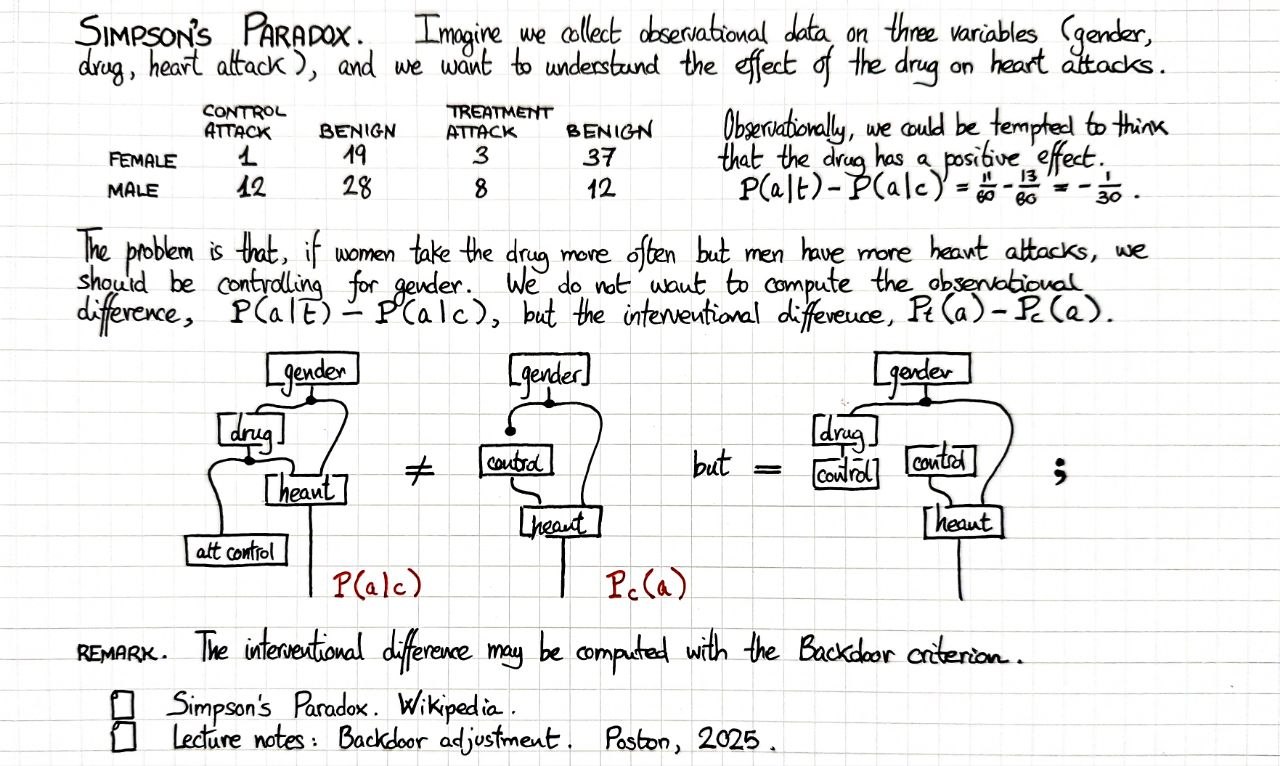 SIMPSON'S PARADOX. Imagine we collect observational data on three variables (gender,
drug, heart attack), and we want to understand the effect of the drug on heart attacks.
CONTROL TREATMENT
ATTACK BENIGN ATTACK BENIGN
FEMALE 1 19 3 37
MALE 12 28 8 12
Observationally, we could be tempted to think
that the drug has a positive effect.
P(a|t) - P(a|c) = 11/60 - 13/60 = - 1/30 .
The problem is that, if women take the drug more often but men have more heart attacks, we
should be controlling for gender. We do not want to compute the observational
difference, P(a|t) - P(a|c), but the interventional difference, Pt(a) - Pc(a).
gender
drug
heart
att control
P(a|c)
≠
gender
control
heart
Pc(a)
but =
gender
drug
control
control
heart
;
REMARK. The interventional difference may be computed with the Backdoor criterion.
Simpson's Paradox. Wikipedia.
Lecture notes: Backdoor adjustment. Poston, 2025.